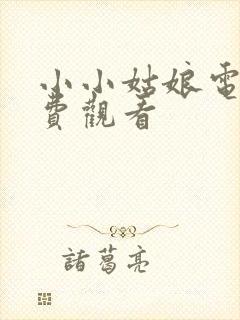 小小姑娘電
費觀看
諸葛亮